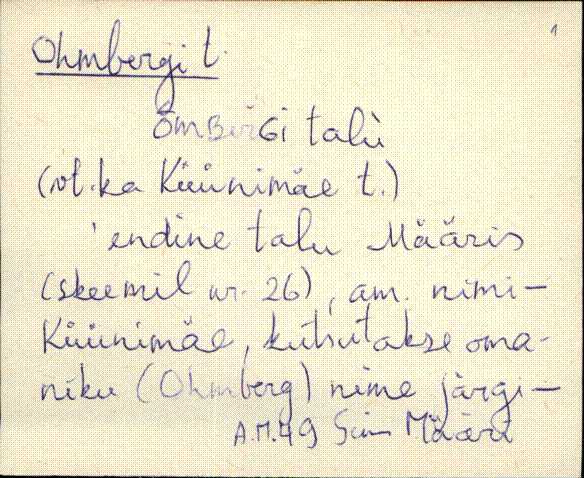 1
Ohmbergi t.
ōmBerGi talù
(vt. ka Küünimäe t.)
'endine talu Määris
(skeemil nr. 26), am. nimi –
Küünimäe, kutsutakse oma-
niku (Ohmberg) nime järgi –
A.M.49 Sim Määri